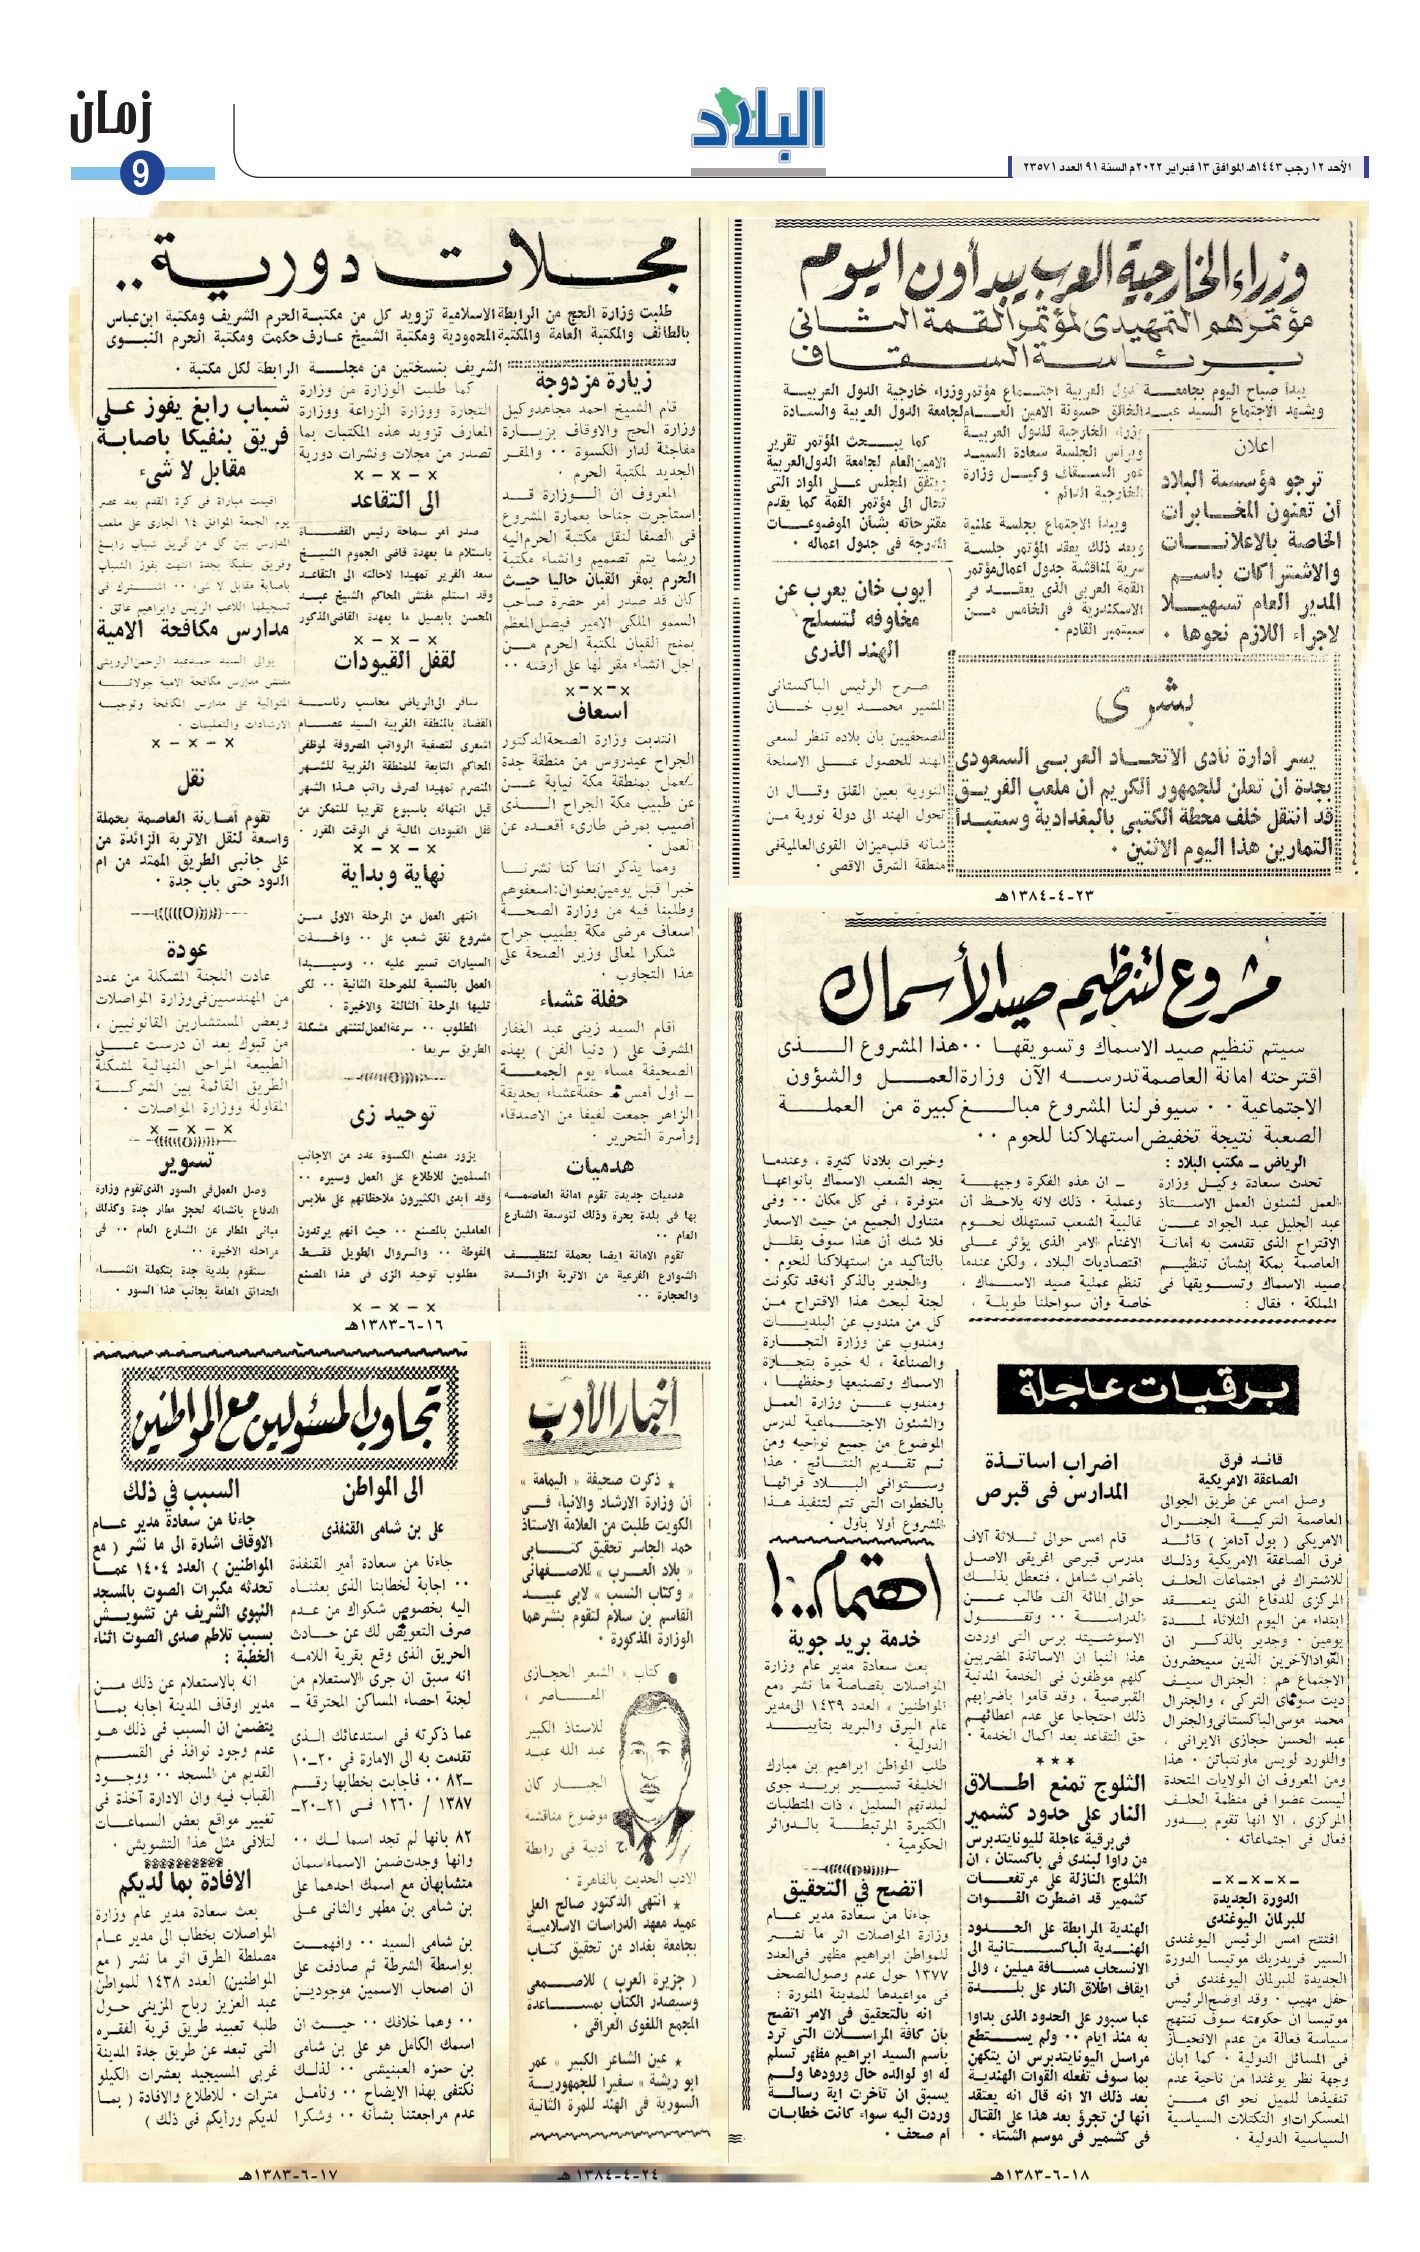 زمان
9
البلاد
الأحد ١٢ رجب ١٤٤٣هـ الموافق ١٣ فبراير ٢٠٢٢م السنة ٩١ العدد ٢٣٥٧١
وزراء الخارجية العرب يبدأون اليوم
مؤتمرهم التمهيدى لمؤتمر القمة الثانى
برئاسة السقاف
يبدأ صباح اليوم بجامعة الدول العربية اجتماع مؤتمر وزراء خارجية الدول العربية
ويشهد الاجتماع السيد عبد الخالق حسونة الامين العام لجامعة الدول العربية والسادة
وزراء الخارجية للدول العربية
ويرأس الجلسة سعادة السيد
عمر السقاف وكيل وزارة
الخارجية الدائم .
ويبدأ الاجتماع بجلسة علنية
وبعد ذلك يعقد المؤتمر جلسة
سرية لمناقشة جدول اعمال مؤتمر
القمة العربى الذى يعقد فى
الاسكندرية فى الخامس من
سبتمبر القادم .
كما يبحث المؤتمر تقرير
الامين العام لجامعة الدول العربية
ويتفق المجلس على المواد التى
تحال الى مؤتمر القمة كما يقدم
مقترحاته بشأن الموضوعات
المدرجة فى جدول اعماله .
اعلان
ترجو مؤسسة البلاد
أن تعنون المخابرات
الخاصة بالاعلانات
والاشتراكات باسم
المدير العام تسهيلا
لاجراء اللازم نحوها .
ايوب خان يعرب عن
مخاوفه لتسلح
الهند الذرى
صرح الرئيس الباكستانى
المشير محمد ايوب خان
للصحفيين بان بلاده تنظر لسعى
الهند للحصول على الاسلحة
النووية بعين القلق وقال ان
تحول الهند الى دولة نووية من
شانه قلب ميزان القوى العالمية فى
منطقة الشرق الاقصى .
بشرى
يسر ادارة نادى الاتحاد العربى السعودى
بجدة ان تعلن للجمهور الكريم ان ملعب الفريق
قد انتقل خلف محطة الكتبى بالبغدادية وستبدأ
التمارين هذا اليوم الاثنين .
٢٣-٤-١٣٨٤هـ
مجلات دورية ..
طلبت وزارة الحج من الرابطة الاسلامية تزويد كل من مكتبة الحرم الشريف ومكتبة ابن عباس
بالطائف والمكتبة العامة والمكتبة المحمودية ومكتبة الشيخ عارف حكمت ومكتبة الحرم النبوى
الشريف بنسختين من مجلة الرابطة لكل مكتبة .
كما طلبت الوزارة من وزارة
التجارة ووزارة الزراعة ووزارة
المعارف تزويد هذه المكتبات بما
تصدر من مجلات ونشرات دورية
زيارة مزدوجة
قام الشيخ احمد مجاهد وكيل
وزارة الحج والاوقاف بزيارة
مفاجئة لدار الكسوة .. والمقر
الجديد لمكتبة الحرم .
المعروف ان الوزارة قد
استأجرت جناحا بعمارة المشروع
فى الصفا لنقل مكتبة الحرم اليه
ريثما يتم تصميم وانشاء مكتبة
الحرم بمقر القبان حاليا حيث
كان قد صدر أمر حضرة صاحب
السمو الملكى الامير فيصل المعظم
بمنح القبان لمكتبة الحرم من
اجل انشاء مقر لها على أرضه ..
x-x-x
اسعاف
انتدبت وزارة الصحة الدكتور
الجراح عيدروس من منطقة جدة
للعمل بمنطقة مكة نيابة عن
عن طبيب مكة الجراح الذى
أصيب بمرض طارىء أقعده عن
العمل .
ومما يذكر اننا كنا نشرنا
خبرا قبل يومين بعنوان: اسعفوهم
وطلبنا فيه من وزارة الصحة
اسعاف مرضى مكة بطبيب جراح
شكرا لمعالى وزير الصحة على
هذا التجاوب .
حفلة عشاء
أقام السيد زينى عبد الغفار
المشرف على ( دنيا الفن ) بهذه
الصحيفة مساء يوم الجمعة
ـ أول أمس ـ حفلة عشاء بحديقة
الزاهر جمعت لفيفا من الاصدقاء
وأسرة التحرير .
هدميات
هدميات جديدة تقوم امانة العاصمة
بها فى بلدة بحرة وذلك لتوسعة الشارع
العام ..
تقوم الامانة ايضا بحملة لتنظيف
الشوارع الفرعية من الاتربة الزائدة
والحجارة ..
x-x-x
الى التقاعد
صدر أمر سماحة رئيس القضاة
باستلام ما بعهدة قاضى الجموم الشيخ
سعد الفرير تمهيدا لاحالته الى التقاعد
وقد استلم مفتش المحاكم الشيخ عبد
المحسن بابصيل ما بعهدة القاضى المذكور
x-x-x
لقفل القيودات
سافر الى الرياض محاسب رئاسة
القضاة بالمنطقة الغربية السيد عصام
اشعرى لتصفية الرواتب المصروفة لموظفى
المحاكم التابعة للمنطقة الغربية للشهر
المنصرم تمهيدا لصرف راتب هذا الشهر
قبل انتهائه باسبوع تقريبا للتمكن من
قفل القيودات المالية فى الوقت المقرر .
x-x-x
نهاية وبداية
انتهى العمل من المرحلة الاولى من
مشروع نفق شعب على .. واخذت
السيارات تسير عليه .. وسيبدا
العمل بالنسبة للمرحلة الثانية .. لكى
تليها المرحلة الثالثة والاخيرة .
المطلوب .. سرعة العمل لتنتهى مشكلة
الطريق سريعا .
توحيد زى
يزور مصنع الكسوة عدد من الاجانب
المسلمين للاطلاع على العمل وسيره ..
وقد أبدى الكثيرون ملاحظاتهم على ملابس
العاملين بالمصنع .. حيث انهم يرتدون
الفوطة .. والسروال الطويل فقط
مطلوب توحيد الزى فى هذا المصنع
x-x-x
شباب رابغ يفوز على
فريق بنفيكا باصابة
مقابل لا شىء
اقيمت مباراة فى كرة القدم بعد عصر
يوم الجمعة الموافق ١٤ الجارى على ملعب
المدارس بين كل من فريق شباب رابغ
وفريق بنفيكا بجدة انتهت بفوز الشباب
باصابة مقابل لا شىء .. اشترك فى
تسجيلها اللاعب الريس وابراهيم عاتق .
مدارس مكافحة الامية
يوالى السيد حمد عبد الرحمن الروينى
مفتش مدارس مكافحة الامية جولاته
المتوالية على مدارس المكافحة وتوجيه
الارشادات والتعليمات .
x-x-x
نقل
تقوم أمانة العاصمة بحملة
واسعة لنقل الاتربة الزائدة من
على جانبى الطريق الممتد من ام
الدود حتى باب جدة .
عودة
عادت اللجنة المشكلة من عدد
من المهندسين فى وزارة المواصلات
وبعض المستشارين القانونيين ،
من تبوك بعد ان درست على
الطبيعة المراحل النهائية لمشكلة
الطريق القائمة بين الشركة
المقاولة ووزارة المواصلات .
x-x-x
تسوير
وصل العمل فى السور الذى تقوم وزارة
الدفاع بانشائه لحجز مطار جدة وكذلك
مبانى المطار عن الشارع العام .. فى
مراحله الاخيرة ..
ستقوم بلدية جدة بتكملة انشاء
الحدائق العامة بجانب هذا السور .
١٦-٦-١٣٨٣هـ
مشروع لتنظيم صيد الأسماك
سيتم تنظيم صيد الاسماك وتسويقها .. هذا المشروع الذى
اقترحته امانة العاصمة تدرسه الآن وزارة العمل والشؤون
الاجتماعية .. سيوفر لنا المشروع مبالغ كبيرة من العملة
الصعبة نتيجة تخفيض استهلاكنا للحوم ..
الرياض ـ مكتب البلاد :
تحدث سعادة وكيل وزارة
العمل لشئون العمل الاستاذ
عبد الجليل عبد الجواد عن
الاقتراح الذى تقدمت به أمانة
العاصمة بمكة بشأن تنظيم
صيد الاسماك وتسويقها فى
المملكة . فقال :
ـ ان هذه الفكرة وجيهة
وعملية . ذلك لانه يلاحظ أن
غالبية الشعب تستهلك لحوم
الاغنام الامر الذى يؤثر على
اقتصاديات البلاد ، ولكن عندما
تنظم عملية صيد الاسماك ،
خاصة وأن سواحلنا طويلة ،
وخيرات بلادنا كثيرة ، وعندما
يجد الشعب الاسماك بأنواعها
متوفرة ، فى كل مكان .. وفى
متناول الجميع من حيث الاسعار
فلا شك أن هذا سوف يقلل
بالتأكيد من استهلاكنا للحوم .
والجدير بالذكر أنه قد تكونت
لجنة لبحث هذا الاقتراح من
كل من مندوب عن البلديات
ومندوب عن وزارة التجارة
والصناعة ، له خبرة بتجارة
الاسماك وتصنيعها وحفظها ،
ومندوب عن وزارة العمل
والشئون الاجتماعية لدرس
الموضوع من جميع نواحيه ومن
ثم تقديم النتائج . هذا
وستوافى البلاد قرائها
بالخطوات التى تتم لتنفيذ هذا
المشروع أولا بأول .
برقيات عاجلة
قائد فرق
الصاعقة الامريكية
وصل امس عن طريق الجو الى
العاصمة التركية الجنرال
الامريكى ( بول آدامز ) قائد
فرق الصاعقة الامريكية وذلك
للاشتراك فى اجتماعات الحلف
المركزى للدفاع الذى ينعقد
ابتداء من اليوم الثلاثاء لمدة
يومين . وجدير بالذكر ان
القواد الآخرين الذين سيحضرون
الاجتماع هم : الجنرال سيف
ديت سوناى التركى ، والجنرال
محمد موسى الباكستانى والجنرال
عبد الحسن حجازى الايرانى ،
واللورد لويس ماونتباتن . هذا
ومن المعروف ان الولايات المتحدة
ليست عضوا فى منظمة الحلف
المركزى ، الا انها تقوم بدور
فعال فى اجتماعاته .
-x-x-x-
الدورة الجديدة
للبرلمان اليوغندى
افتتح امس الرئيس اليوغندى
السير فريدريك موتيسا الدورة
الجديدة للبرلمان اليوغندى فى
حفل مهيب . وقد اوضح الرئيس
موتيسا ان حكومته سوف تنتهج
سياسة فعالة من عدم الانحياز
فى المسائل الدولية . كما ابان
وجهة نظر يوغندا من ناحية عدم
تنفيذها للميل نحو اى من
المعسكرات او التكتلات السياسية
السياسية الدولية .
اضراب اساتذة
المدارس فى قبرص
قام امس حوالى ثلاثة آلاف
مدرس قبرصى اغريقى الاصل
باضراب شامل ، فتعطل بذلك
حوالى المائة الف طالب عن
الدراسة .. وتقول
الاسوشيتد برس التى اوردت
هذا النبا ان الاساتذة المضربين
كلهم موظفون فى الخدمة المدنية
القبرصية ، وقد قاموا باضرابهم
ذلك احتجاجا على عدم اعطائهم
حق التقاعد بعد اكمال الخدمة .
★★★
الثلوج تمنع اطلاق
النار على حدود كشمير
فى برقية عاجلة لليونايتدبرس
من راوا لبندى فى باكستان ، ان
الثلوج النازلة على مرتفعات
كشمير قد اضطرت القوات
الهندية المرابطة على الحدود
الهندية الباكستانية الى
الانسحاب مسافة ميلين ، والى
ايقاف اطلاق النار على بلدة
عبا سبور على الحدود الذى بداوا
به منذ ايام .. ولم يستطع
مراسل اليونايتدبرس ان يتكهن
بما سوف تفعله القوات الهندية
بعد ذلك الا انه قال انه يعتقد
انها لن تجرؤ بعد هذا على القتال
فى كشمير فى موسم الشتاء .
اهتمام..!
خدمة بريد جوية
بعث سعادة مدير عام وزارة
المواصلات بقصاصة ما نشر «مع
المواطنين» العدد ١٤٣٩ الى مدير
عام البرق والبريد بتأييد
الدولية .
طلب المواطن ابراهيم بن مبارك
الخليفة تسيير بريد جوى
لبلدتهم السليل ، ذات المتطلبات
الكثيرة المرتبطة بالدوائر
الحكومية .
اتضح في التحقيق
جاءنا من سعادة مدير عام
وزارة المواصلات اثر ما نشر
للمواطن ابراهيم مظهر فى العدد
١٣٧٧ حول عدم وصول الصحف
فى مواعيدها للمدينة المنورة :
انه بالتحقيق فى الامر اتضح
بأن كافة المراسلات التى ترد
بأسم السيد ابراهيم مظهر تسلم
له او لوالده حال ورودها ولم
يسبق ان تأخرت اية رسالة
وردت اليه سواء كانت خطابات
أم صحف .
١٨-٦-١٣٨٣هـ
أخبار الأدب
★ ذكرت صحيفة « اليمامة »
أن وزارة الارشاد والانباء فى
الكويت طلبت من العلامة الاستاذ
حمد الجاسر تحقيق كتابى
« بلاد العرب » للاصفهانى
« وكتاب النسب » لابى عبيد
القاسم بن سلام لتقوم بنشرهما
الوزارة المذكورة .
● كتاب « الشعر الحجازى
المعاصر ،
للاستاذ الكبير
عبد الله عبد
الجبار كان
موضوع مناقشة
أدبية فى رابطة
الادب الحديث بالقاهرة .
★ انتهى الدكتور صالح العلى
عميد معهد الدراسات الاسلامية
بجامعة بغداد من تحقيق كتاب
( جزيرة العرب ) للاصمعى
وسيصدر الكتاب بمساعدة
المجمع اللغوى العراقى .
★ عين الشاعر الكبير « عمر
ابو ريشة » سفيرا للجمهورية
السورية فى الهند للمرة الثانية
٢٤-٤-١٣٨٤هـ
تجاوب المسئولين مع المواطنين
الى المواطن
على بن شامى القنفذى
جاءنا من سعادة أمير القنفذة
.. اجابة لخطابنا الذى بعثناه
اليه بخصوص شكواك من عدم
صرف التعويض لك عن حادث
الحريق الذى وقع بقرية اللامه
انه سبق ان جرى الاستعلام من
لجنة احصاء المساكن المحترقة ـ
عما ذكرته فى استدعائك الذى
تقدمت به الى الامارة فى ٢٠ـ١٠
ـ٨٢ .. فاجابت بخطابها رقم
١٣٨٧ / ١٢٦٠ فى ٢١ـ٢٠ـ
٨٢ بانها لم تجد اسما لك ..
وانها وجدت ضمن الاسماء اسمان
متشابهان مع اسمك احدهما على
بن شامى بن مطهر والثانى على
بن شامى السيد .. وافهمت
بواسطة الشرطة ثم صادفت على
ان اصحاب الاسمين موجودين
.. وهما خلافك .. حيث ان
اسمك الكامل هو على بن شامى
بن حمزه العبنيشى .. لذلك
نكتفى بهذا الايضاح .. ونأمل
عدم مراجعتنا بشأنه .. وشكرا
السبب في ذلك
جاءنا من سعادة مدير عام
الاوقاف اشارة الى ما نشر ( مع
المواطنين ) العدد ١٤٠٤ عما
تحدثه مكبرات الصوت بالمسجد
النبوى الشريف من تشويش
بسبب تلاطم صدى الصوت اثناء
الخطبة :
انه بالاستعلام عن ذلك من
مدير اوقاف المدينة اجابه بما
يتضمن ان السبب فى ذلك هو
عدم وجود نوافذ فى القسم
القديم من المسجد .. ووجود
القباب فيه وان الادارة آخذة فى
تغيير مواقع بعض السماعات
لتلافى مثل هذا التشويش .
الافادة بما لديكم
بعث سعادة مدير عام وزارة
المواصلات بخطاب الى مدير عام
مصلحة الطرق اثر ما نشر ( مع
المواطنين) العدد ١٤٣٨ للمواطن
عبد العزيز رباح المزينى حول
طلبه تعبيد طريق قرية الفقره
التى تبعد عن طريق جدة المدينة
غربى المسيجيد بعشرات الكيلو
مترات . للاطلاع والافادة ( بما
لديكم ورأيكم فى ذلك )
١٧-٦-١٣٨٣هـ